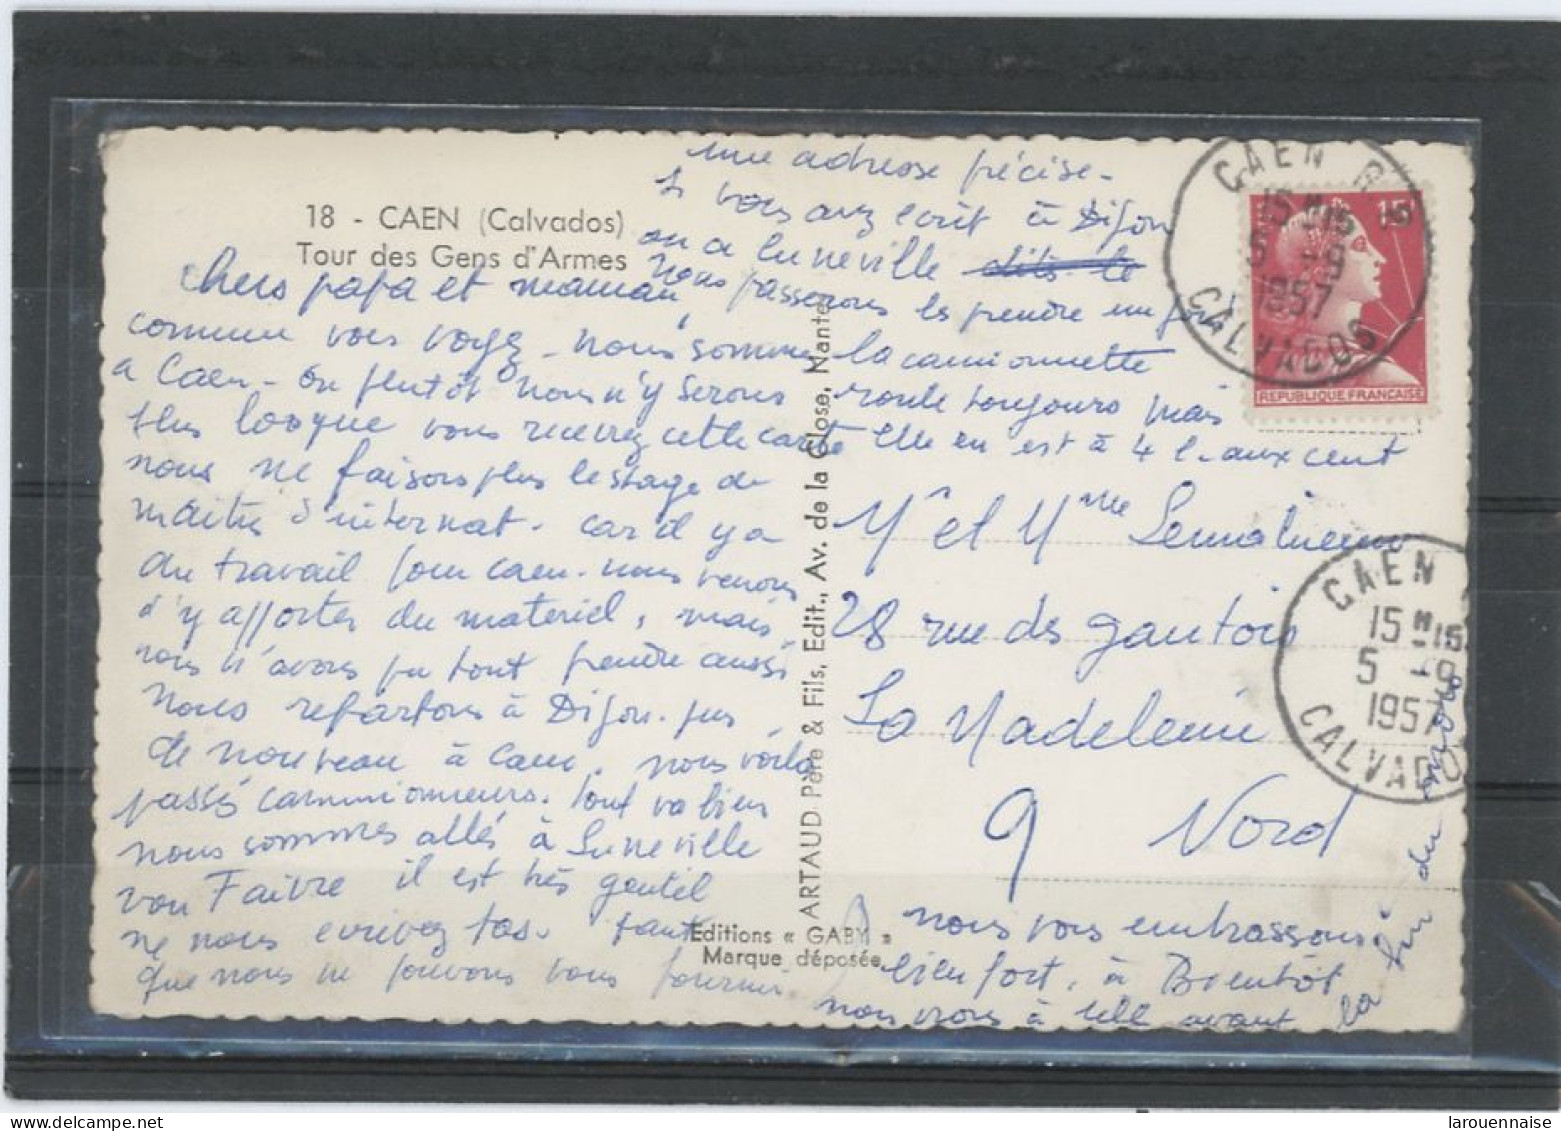 18 - CAEN (Calvados)
Tour des Gens d'Armes
Chers papa et maman,
comme vous voyez - nous sommes
a Caen - ou plutôt nous n'y serons
plus lorsque vous recevrez cette carte
nous ne faisons plus le stage de
maitre d'internat - car il y a
du travail pour Caen. nous venons
d'y apporter du materiel, mais
nous n'avons pu tout prendre aussi
nous repartons à Dijon. puis
de nouveau à Caen, nous voilà
passés camionneurs. tout va bien
nous sommes allés à Luneville
voir Faivre il est très gentil
ne nous ecrivez pas. tant
que nous ne pouvons vous fournir
une adresse précise -
si vous avez ecrit à Dijon
ou a Luneville
nous passerons les prendre un jour
la camionnette
roule toujours mais
elle en est à 4 l. aux cent
ARTAUD Père & Fils, Edit., Av. de la Close, Nantes
Editions « GABY »
Marque déposée
15
REPUBLIQUE FRANÇAISE
CAEN
15 H 15
5 - 9
1957
CALVADOS
Mr et Mme
28 rue des gantois
La Madeleine
9 Nord
CAEN
15 H 15
5 - 9
1957
CALVADOS
nous vous embrassons
bien fort, à Bientôt
nous vrons à Lille avant
la fin du mois
larouennaise